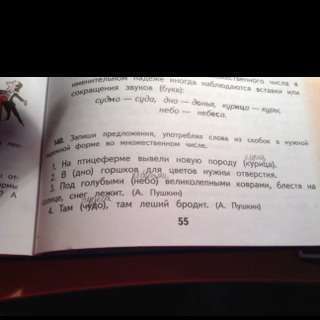 именительном падеже иногда наблюдаются вставки или
сокращения звуков (букв):
судно — суда, дно — донья, курица — куры,
небо — небеса.
140. Запиши предложения, употребляя слова из скобок в нужной
форме во множественном числе.
1. На птицеферме вывели новую породу (курица).
2. В (дно) горшков для цветов нужны отверстия.
3. Под голубыми (небо) великолепными коврами, блестя на
солнце, снег лежит. (А. Пушкин)
4. Там (чудо), там леший бродит. (А. Пушкин)
55